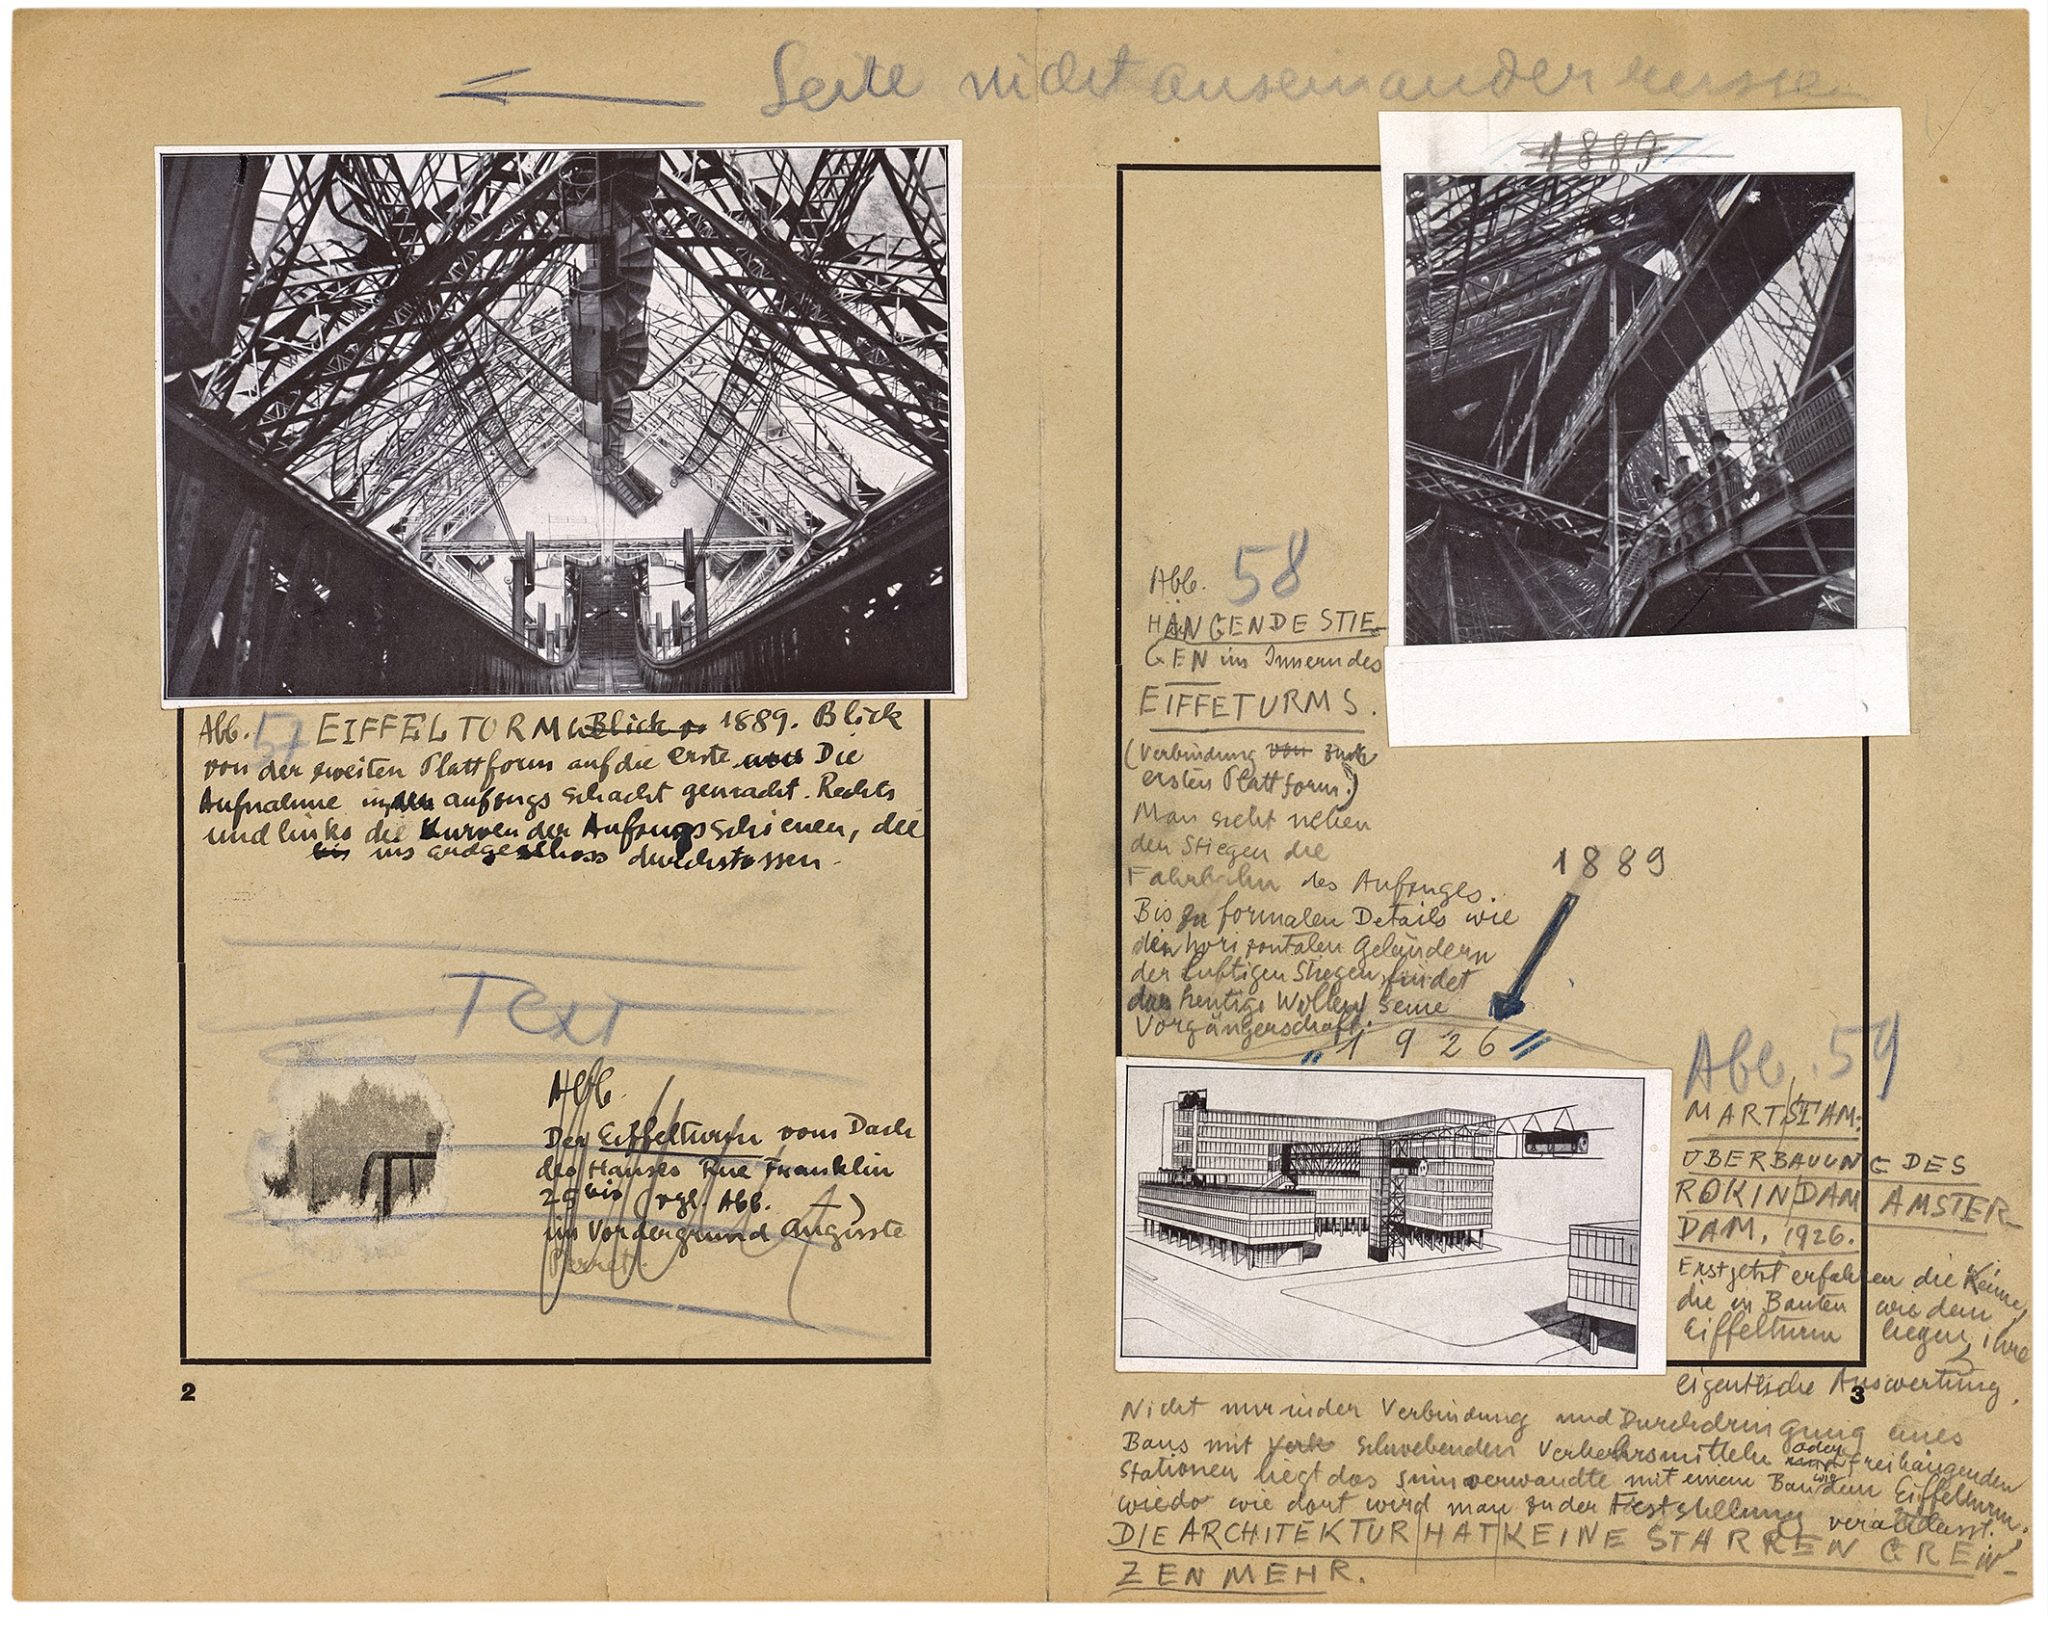 Seite nicht auseinander
Abb. 57 EIFFELTURM Blick v. 1889. Blick
von der zweiten Plattform auf die erste Die
Aufnahme in aufzugsschacht gemacht. Rechts
und links die Kurven der Aufzugsschienen, die
bis ins erdgeschoss durchstossen.
Text
Abb.
Der Eiffelturm vom Dach
des Hauses Rue Franklin
25 bis (vgl. Abb. )
im Vordergrund Auguste
Perret.
2
1889
Abb. 58
HÄNGENDE STIE-
GEN im Innern des
EIFFETURMS.
(Verbindung von zur
ersten Plattform.)
Man sieht neben
den Stiegen die
Fahrbahn des Aufzuges.
Bis zu formalen Details wie
den horizontalen Geländern
der luftigen Stiegen, findet
das heutige Wollen seine
Vorgängerschaft.
1889
"1926"
Abb. 59
MART STAM:
ÜBERBAUUNG DES
ROKIN DAM AMSTER-
DAM, 1926.
Erst jetzt erfahren die Keime,
die in Bauten wie dem
Eiffelturm liegen, ihre
eigentliche Auswertung.
3
Nicht nur in der Verbindung und Durchdringung eines
Baus mit Verk schwebenden Verkehrsmitteln oder freihängenden
Stationen liegt das sinnverwandte mit einem Bau wie dem Eiffelturm,
wie dort wird man zu der Feststellung veranlasst:
DIE ARCHITEKTUR HAT KEINE STARREN GREN-
ZEN MEHR.